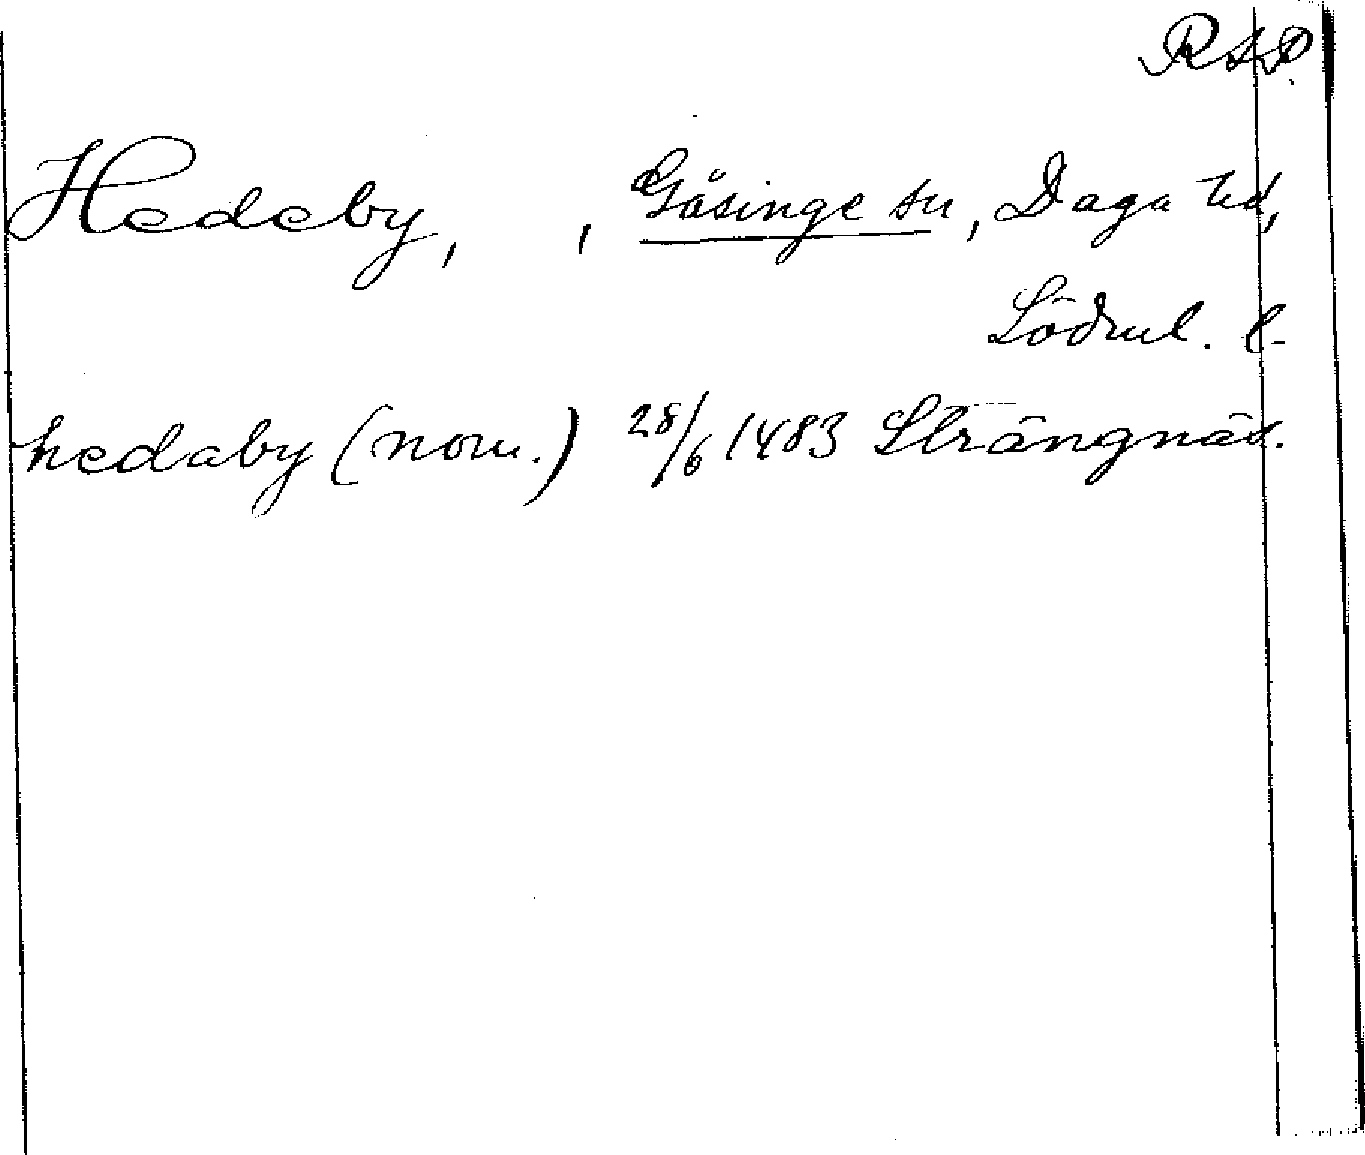 RAP.
Hedeby, , Gåsinge sn, Daga hd,
Södml. l.
hedaby (nom.) 28/6 1483 Strängnäs.